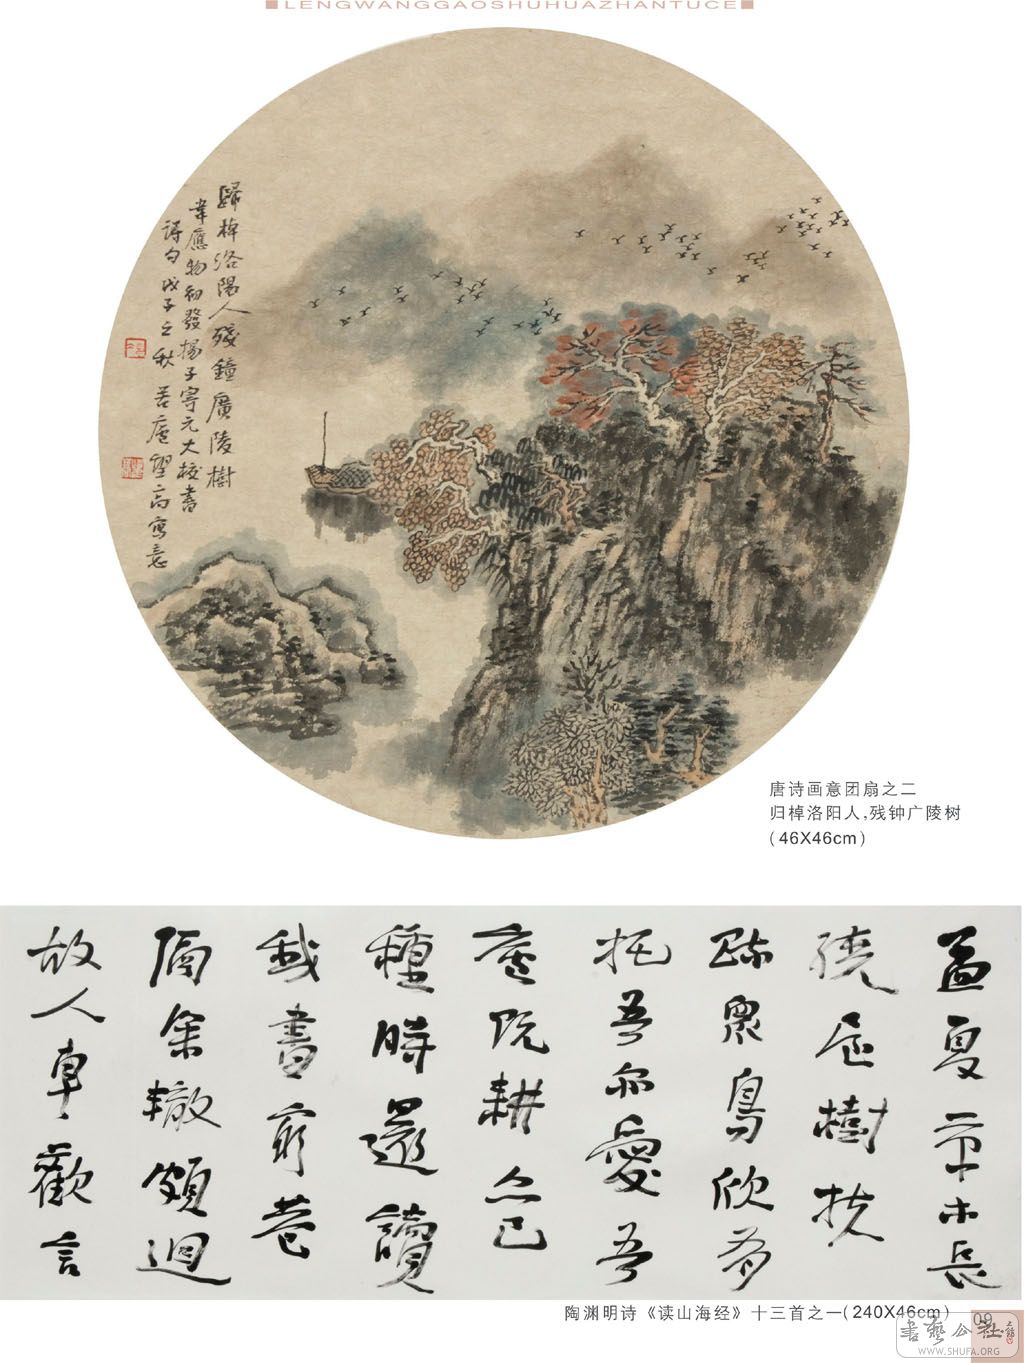 LENGWANGGAOSHUHUAZHANTUCE
歸棹洛陽人殘鐘廣陵樹
韋應物初發揚子寄元大校書
詩句戊子之秋 望高寫意
唐诗画意团扇之二
归棹洛阳人,残钟广陵树
(46X46cm)
孟夏草木長
繞屋樹扶
疎衆鳥欣有
托吾亦愛吾
廬既耕亦已
種時還讀
我書窮巷
隔深轍頗迴
故人車歡言
陶渊明诗《读山海经》十三首之一(240X46cm)
09
書藝公社
WWW.SHUFA.ORG